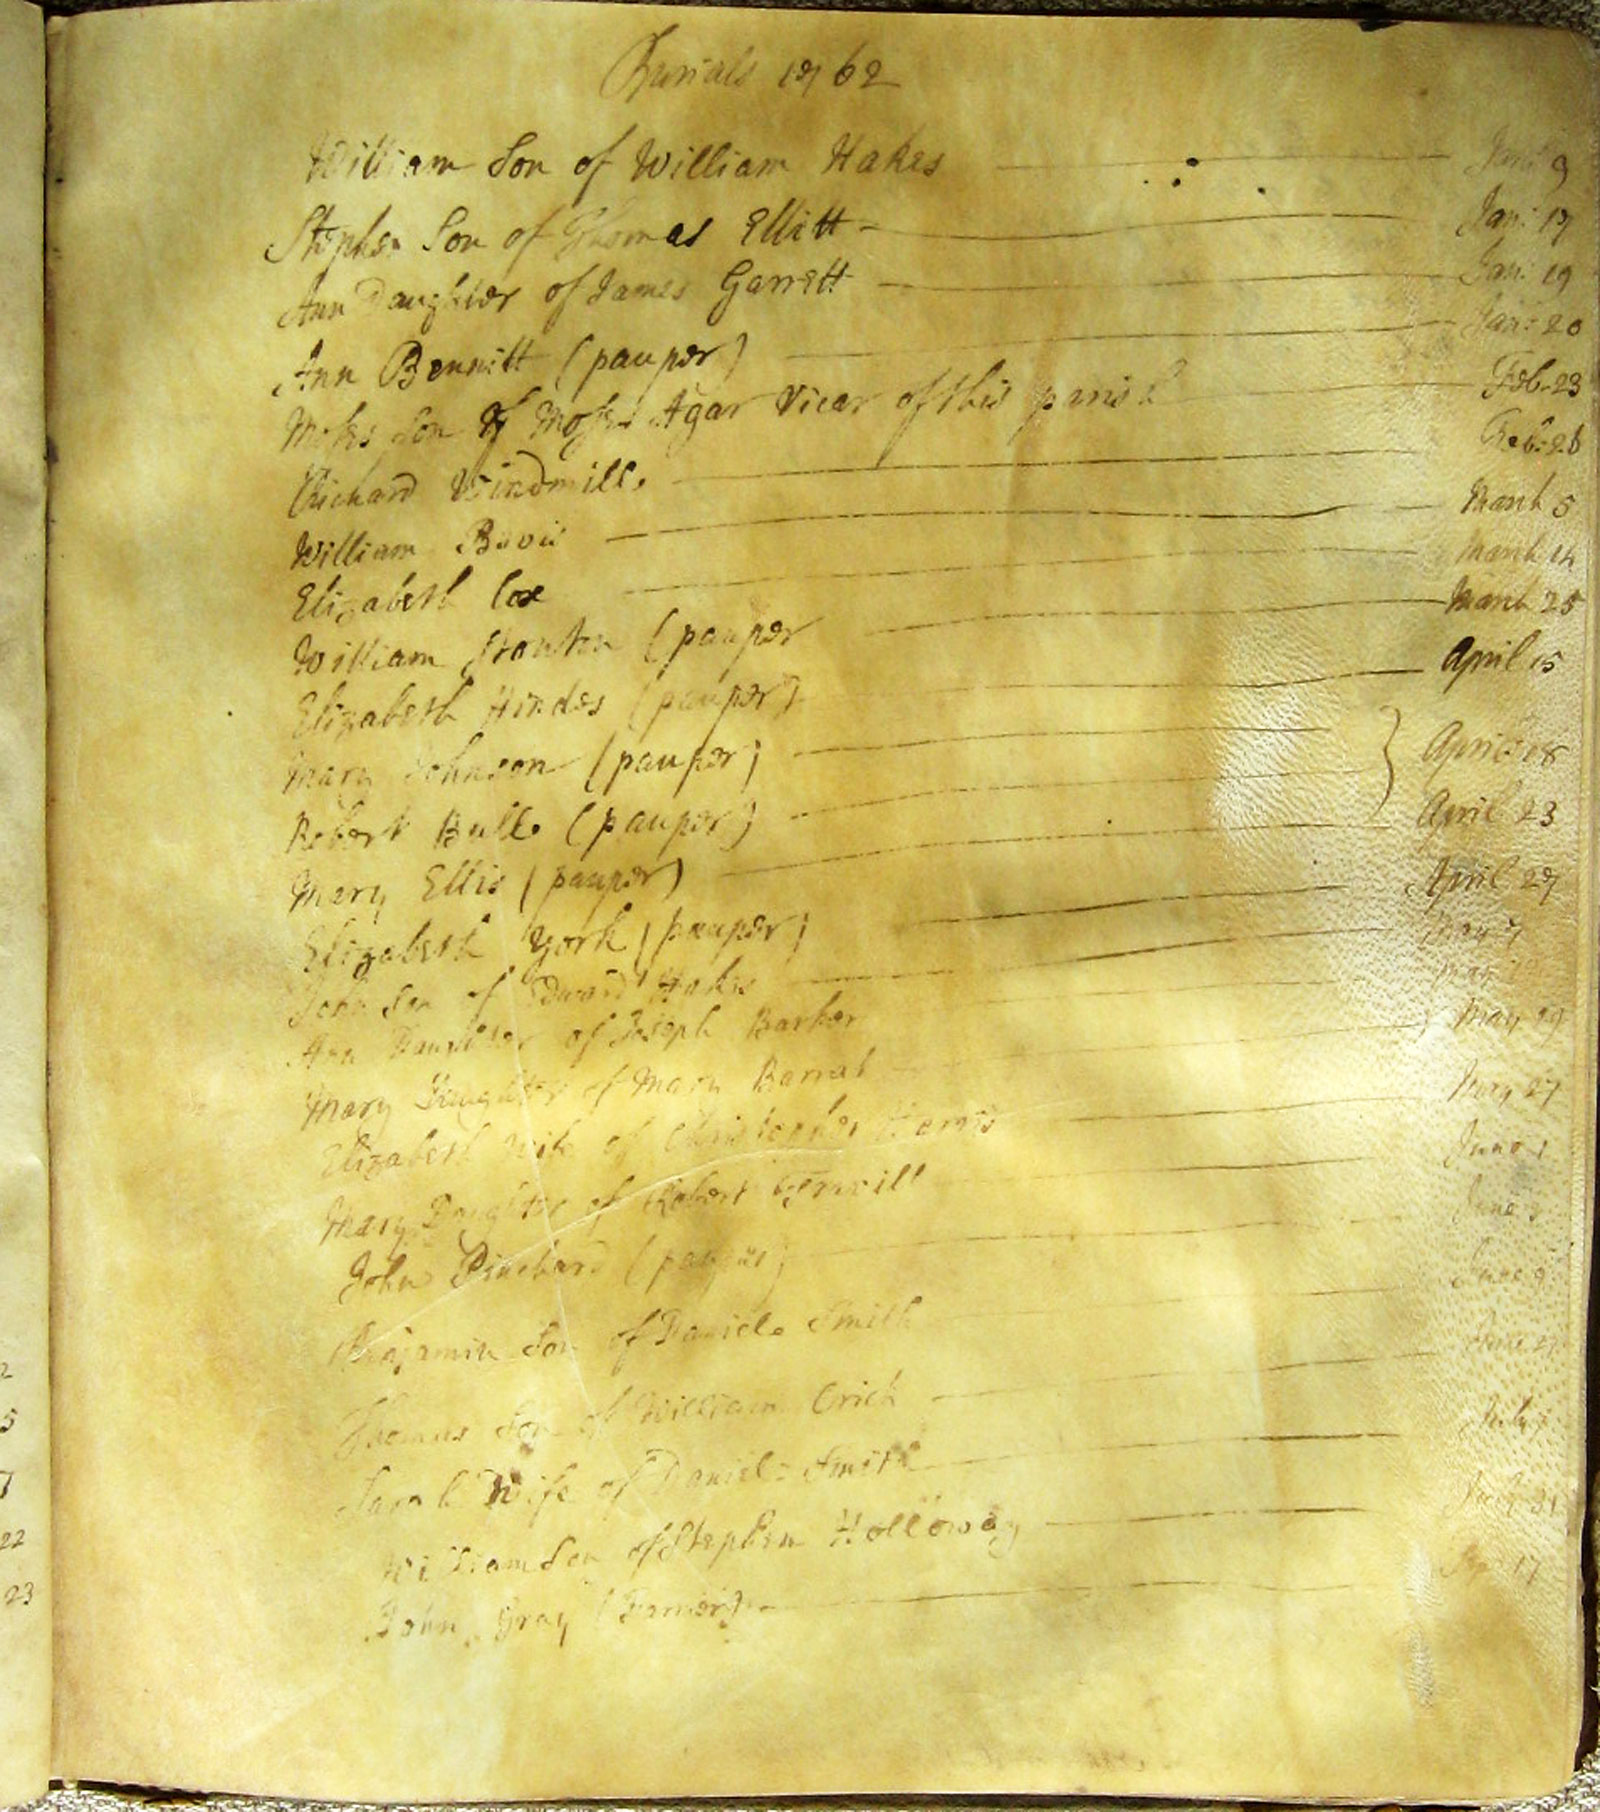 Burials 1762
William Son of William Hakes Jan: 9
Stephen Son of Thomas Ellitt Jan: 17
Ann Daughter of James Garrett Jan: 19
Ann Bennitt (pauper) Jan: 20
Moses Son of Moses Agar Vicar of this parish Feb: 23
Richard Windmill. Feb: 26
William March 5
Elizabeth Cox March 14
William (pauper March 25
Elizabeth Hindes (pauper) April 15
Mary Johnson (pauper) } April 18
Robert Bull (pauper)
Mary Ellis (pauper) April 23
Elizabeth York (pauper) April 27
John Son of Edward Hakes May 7
Ann Daughter of Joseph Barker May
Mary Daughter of Mary Barrat May 19
Elizabeth Wife of Christopher Harris May 27
Mary Daughter of Robert June 1
John Pinchard (pauper) June
Benjamin Son of Daniel Smith June 9
Thomas Son of William Crick June 27
Sarah Wife of Daniel Smith July
William Son of Stephen Holloway July 31
John Gray (Farrier) 17
2
5
22
23